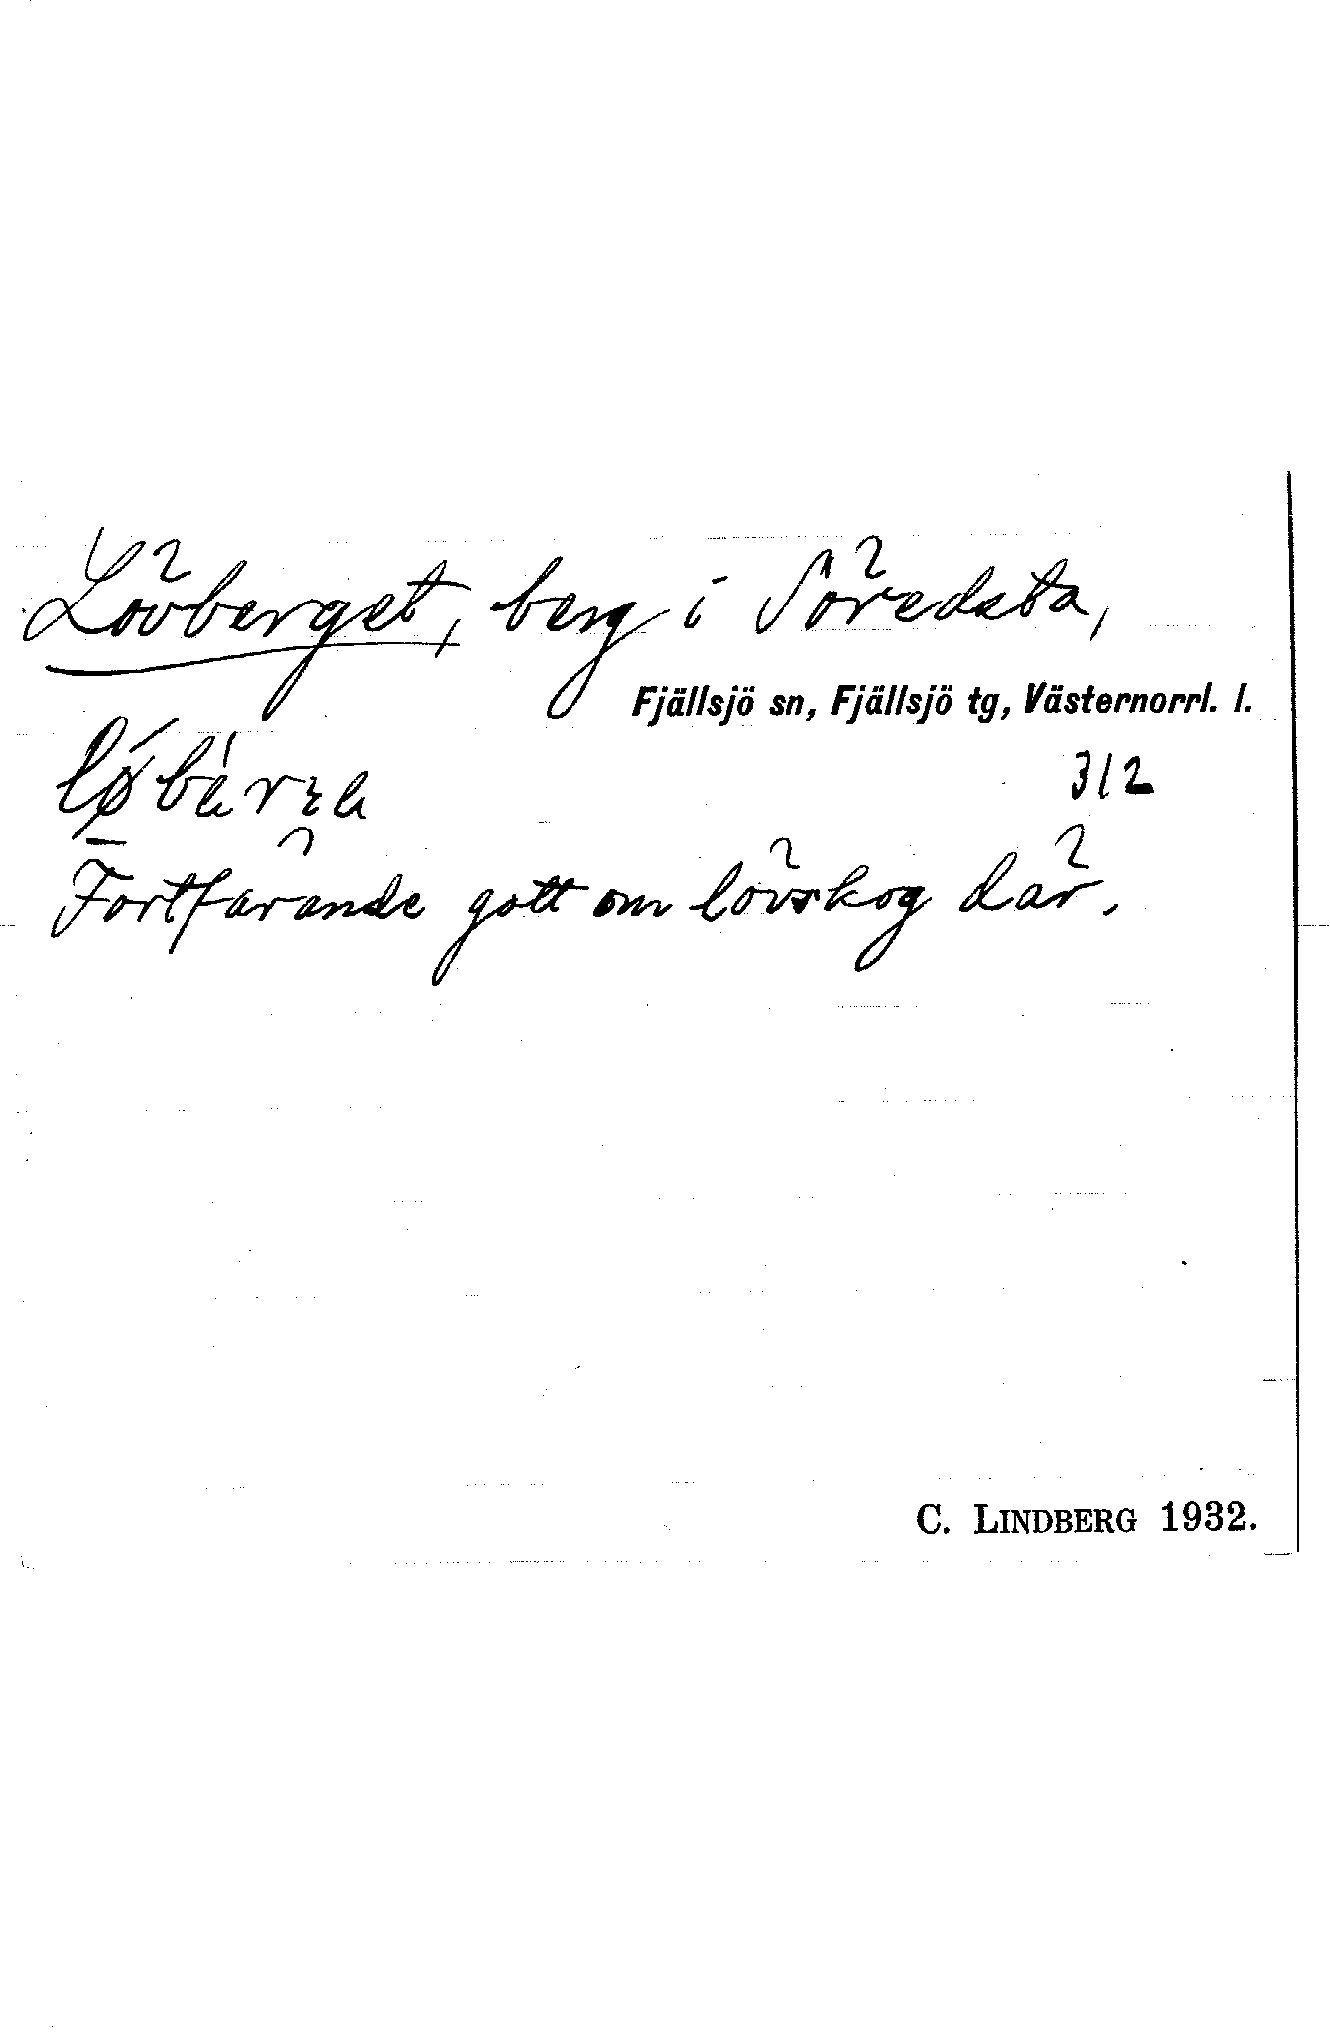 Lövberget, berg i Söredsta,
Fjällsjö sn, Fjällsjö tg, Västernorrl. l.
312
Fortfarande gott om lövskog där.
C. LINDBERG 1932.